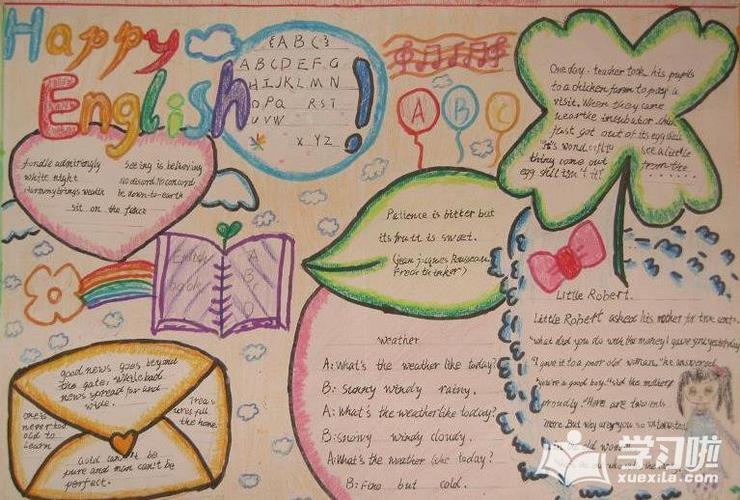 Happy
English!
{ABC}
ABCDEFG
HIJKLMN
OPQ RST
UVW
XYZ
A B C
One day. teacher took his pupils
to a chicken farm to pay a
visit. When they came
incubator
just got out of
thing come out
from the
fondle admiringly
white night
sit on the fence
Seeing is believing
No discord. No concord
be down-to-earth
Patience is bitter but
its fruit is sweet.
(jean jacques Rousseau.
English
book
A
B
C
D
weather
A: What's the weather like today?
B: Sunny windy rainy.
A: What's the weather like today?
B: Snowy windy cloudy.
A: What's the weather like today?
B: Fine but cold.
Little Robert.
Little Robert asked his mother for two cents.
"what did you do with the money I gave you yesterday
"I gave it to a poor old woman," he answered
"you're a good boy," said the mother
proudly. "Here are two cents
more. But why are you so
good news goes beyond
the gate, while bad
news spread far and
wide.
one's never too
old to
learn
Treas
ures fill
the home
Gold can't be
pure and man can't be
perfect.
学习啦
xuexila.com